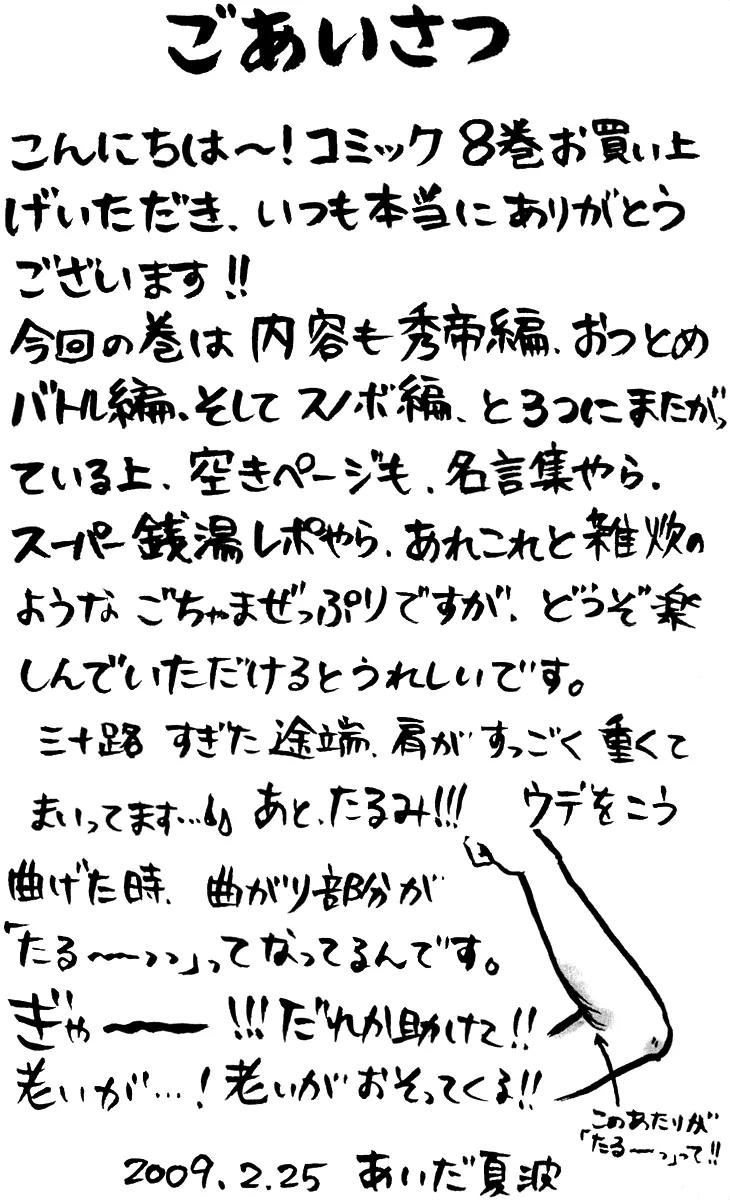 ごあいさつ
こんにちは〜!コミック8巻お買い上
げいただき、いつも本当にありがとう
ございます!!
今回の巻は内容も秀帝編、おつとめ
バトル編、そしてスノボ編、と3つにまたがっ
ている上、空きページも、名言集やら、
スーパー銭湯レポやら、あれこれと雑炊の
ようなごちゃまぜっぷりですが、どうぞ楽
しんでいただけるとうれしいです。
三十路すぎた途端、肩がすっごく重くて
まいってます…あと、たるみ!!! ウデをこう
曲げた時、曲がり部分が
「たる〜〜っっ」ってなってるんです。
ぎゃーー!!!だれか助けて!!
老いが…!老いがおそってくる!!
このあたりが
「たる〜っ」って!!
2009.2.25 あいだ夏波